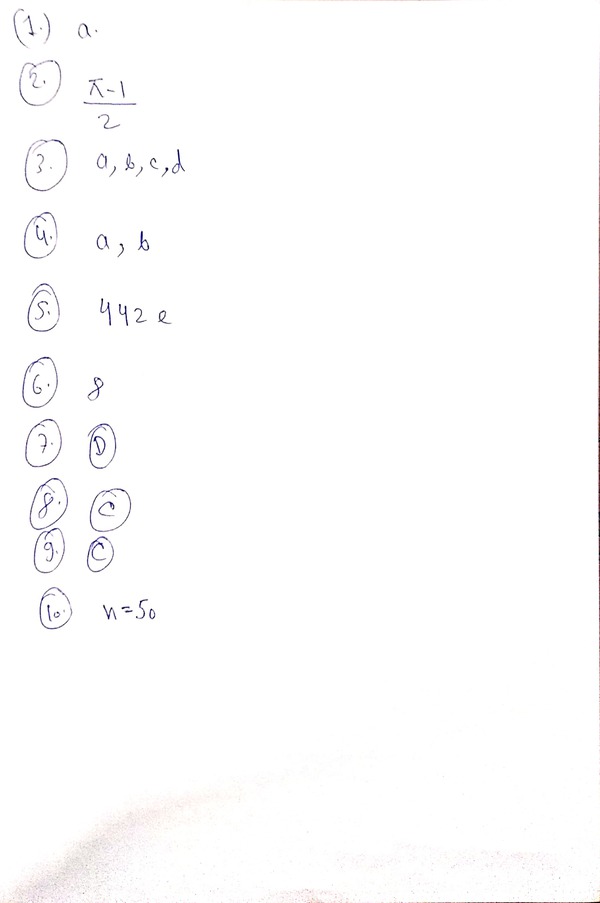 (1.) a.
2. π-1/2
3. a, b, c, d
4. a, b
5. 442 e
6. 8
7. D
8. C
9. C
10. n=50